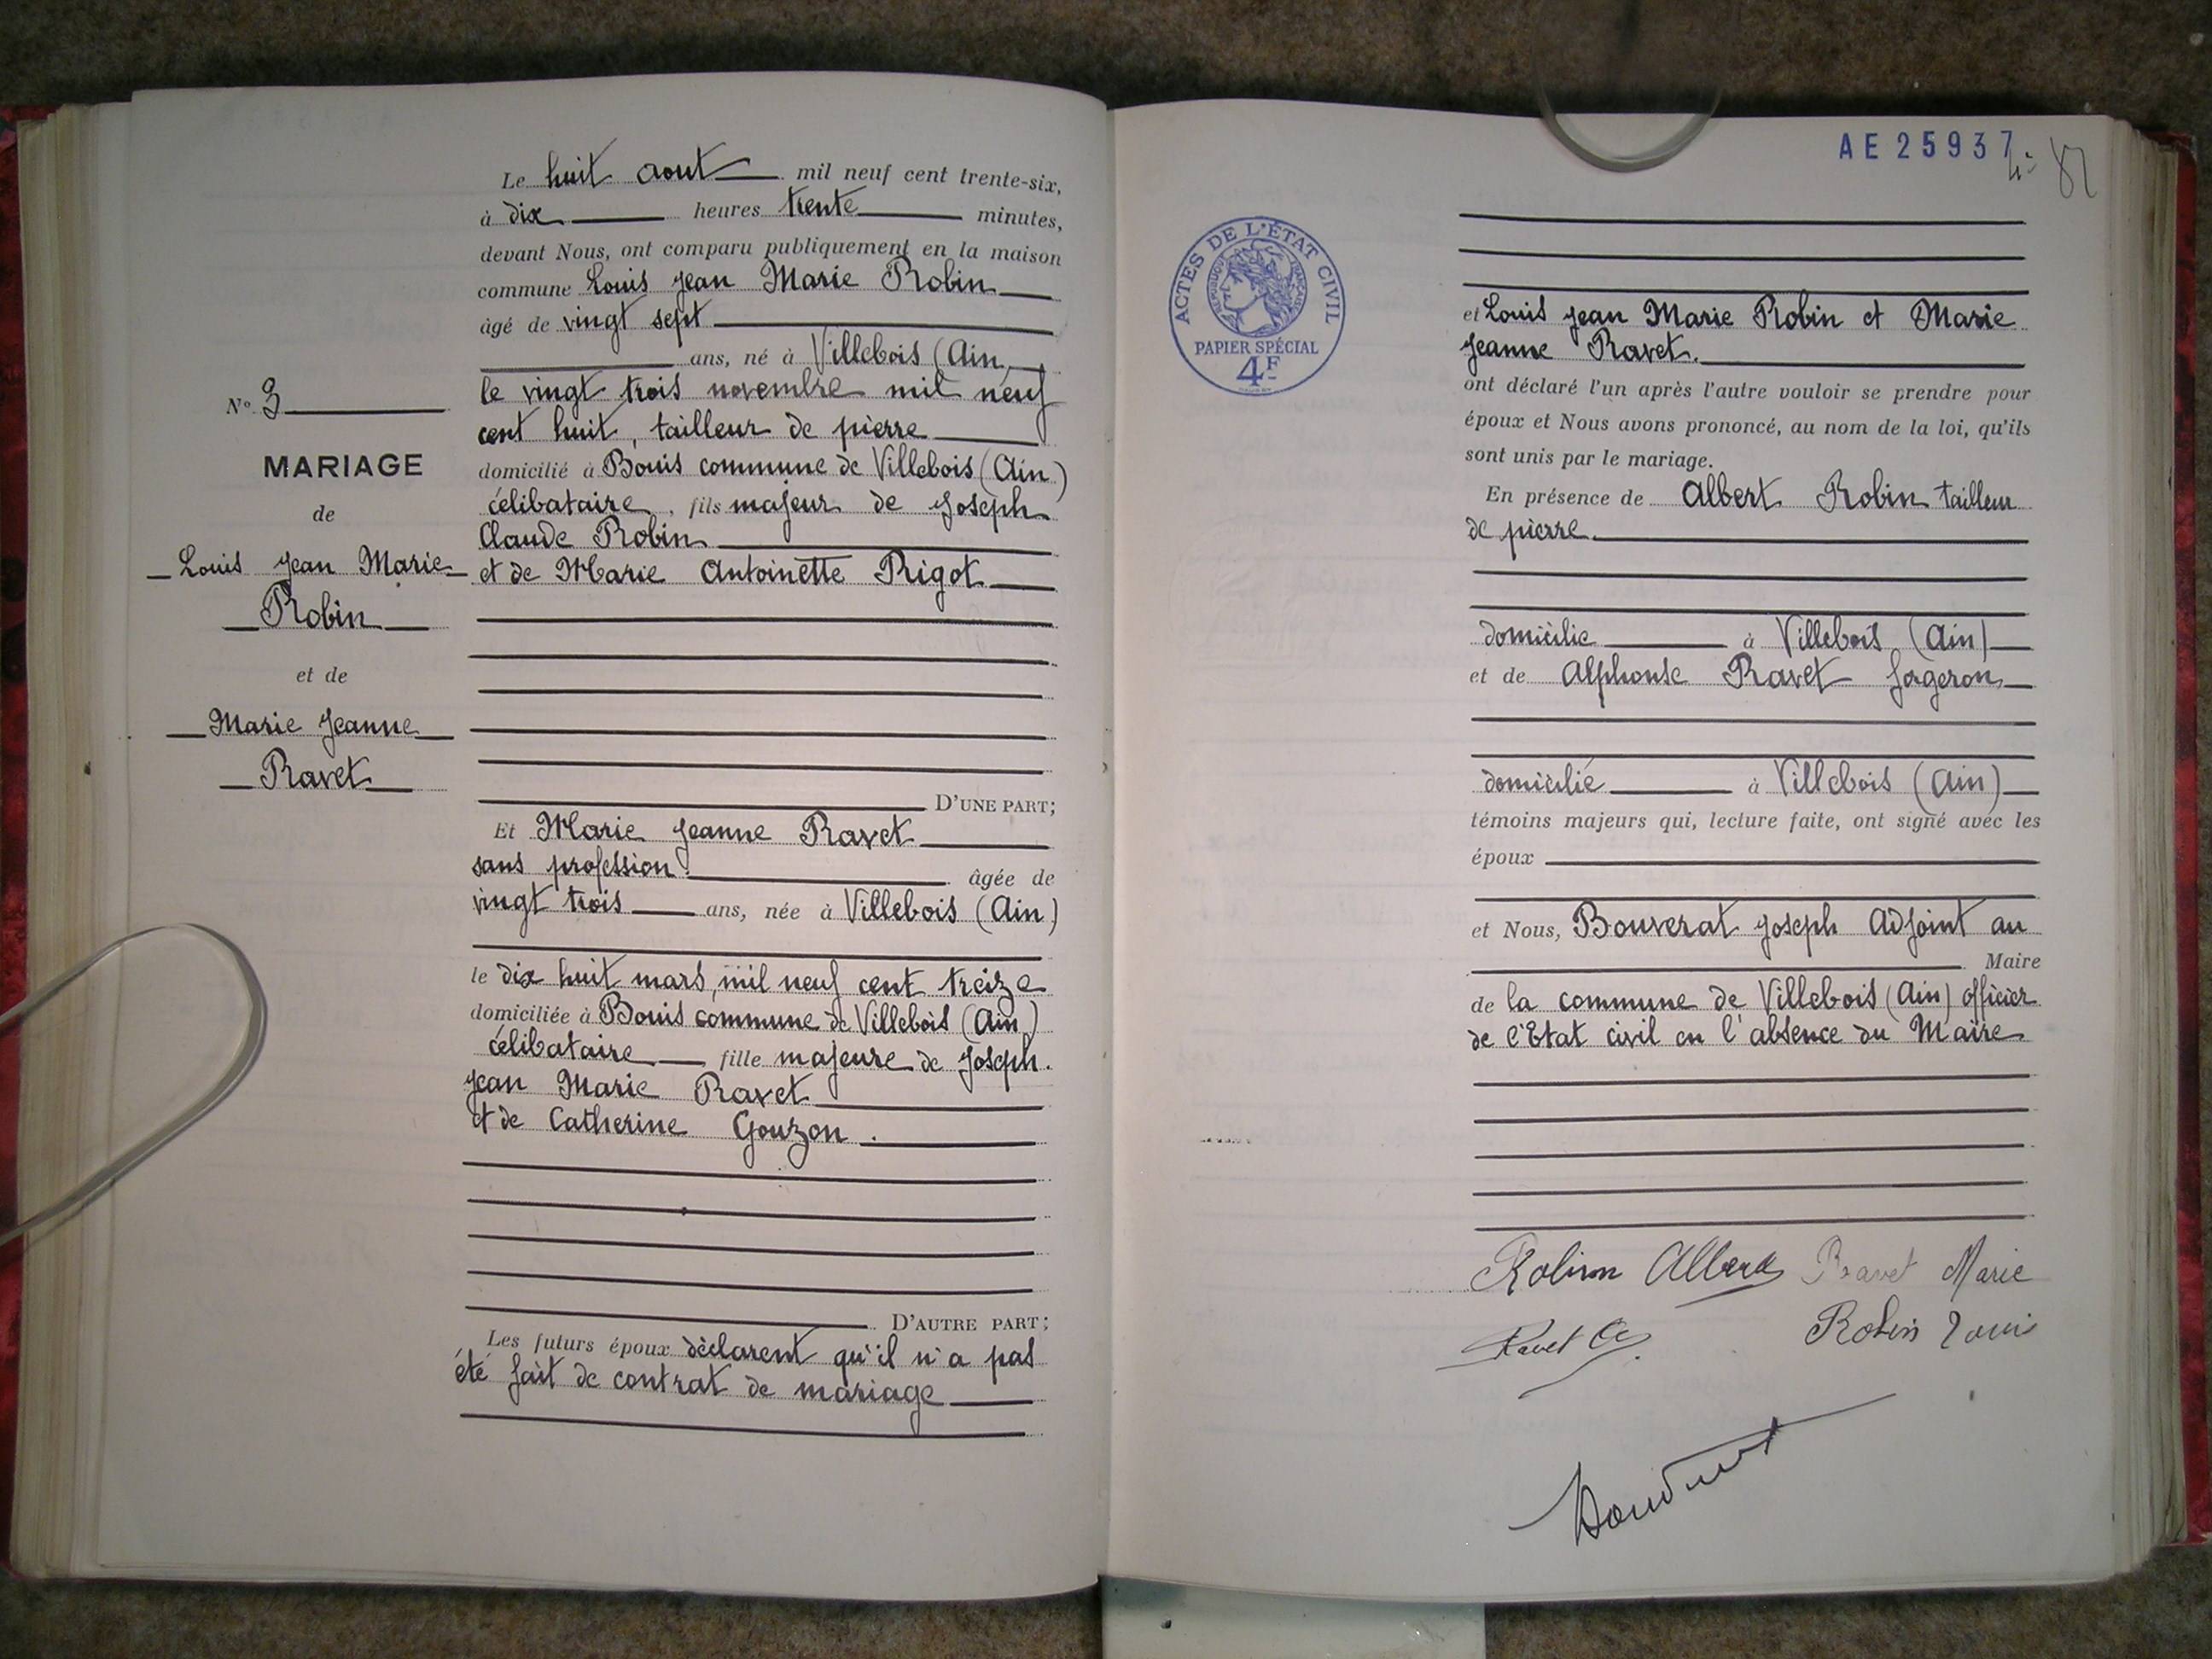 Le huit aout mil neuf cent trente-six,
à dix heures trente minutes,
devant Nous, ont comparu publiquement en la maison
commune Louis Jean Marie Robin
âgé de vingt sept
ans, né à Villebois (Ain
le vingt trois novembre mil neuf
cent huit, tailleur de pierre
domicilié à Bouis commune de Villebois (Ain)
célibataire, fils majeur de Joseph
Claude Robin
et de Marie Antoinette Rigot
D'UNE PART;
Et Marie Jeanne Ravet
sans profession âgée de
vingt trois ans, née à Villebois (Ain)
le dix huit mars, mil neuf cent treize
domiciliée à Bouis commune de Villebois (Ain)
célibataire fille majeure de Joseph.
Jean Marie Ravet
et de Catherine Gouzon.
D'AUTRE PART;
Les futurs époux déclarent qu'il n'a pas
été fait de contrat de mariage
N° 3
MARIAGE
de
Louis Jean Marie
Robin
et de
Marie Jeanne
Ravet
AE 25937
82
ACTES DE L'ÉTAT CIVIL
RÉPUBLIQUE FRANÇAISE
PAPIER SPÉCIAL
4F
et Louis Jean Marie Robin et Marie
Jeanne Ravet.
ont déclaré l'un après l'autre vouloir se prendre pour
époux et Nous avons prononcé, au nom de la loi, qu'ils
sont unis par le mariage.
En présence de Albert Robin tailleur
de pierre
domicilie à Villebois (Ain)
et de Alphonse Ravet forgeron
domicilié à Villebois (Ain)
témoins majeurs qui, lecture faite, ont signé avec les
époux
et Nous, Bouverat Joseph Adjoint au
Maire
de la commune de Villebois (Ain) officier
de l'Etat civil en l'absence du Maire
Robin Albert Ravet Marie
Ravet Robin Louis